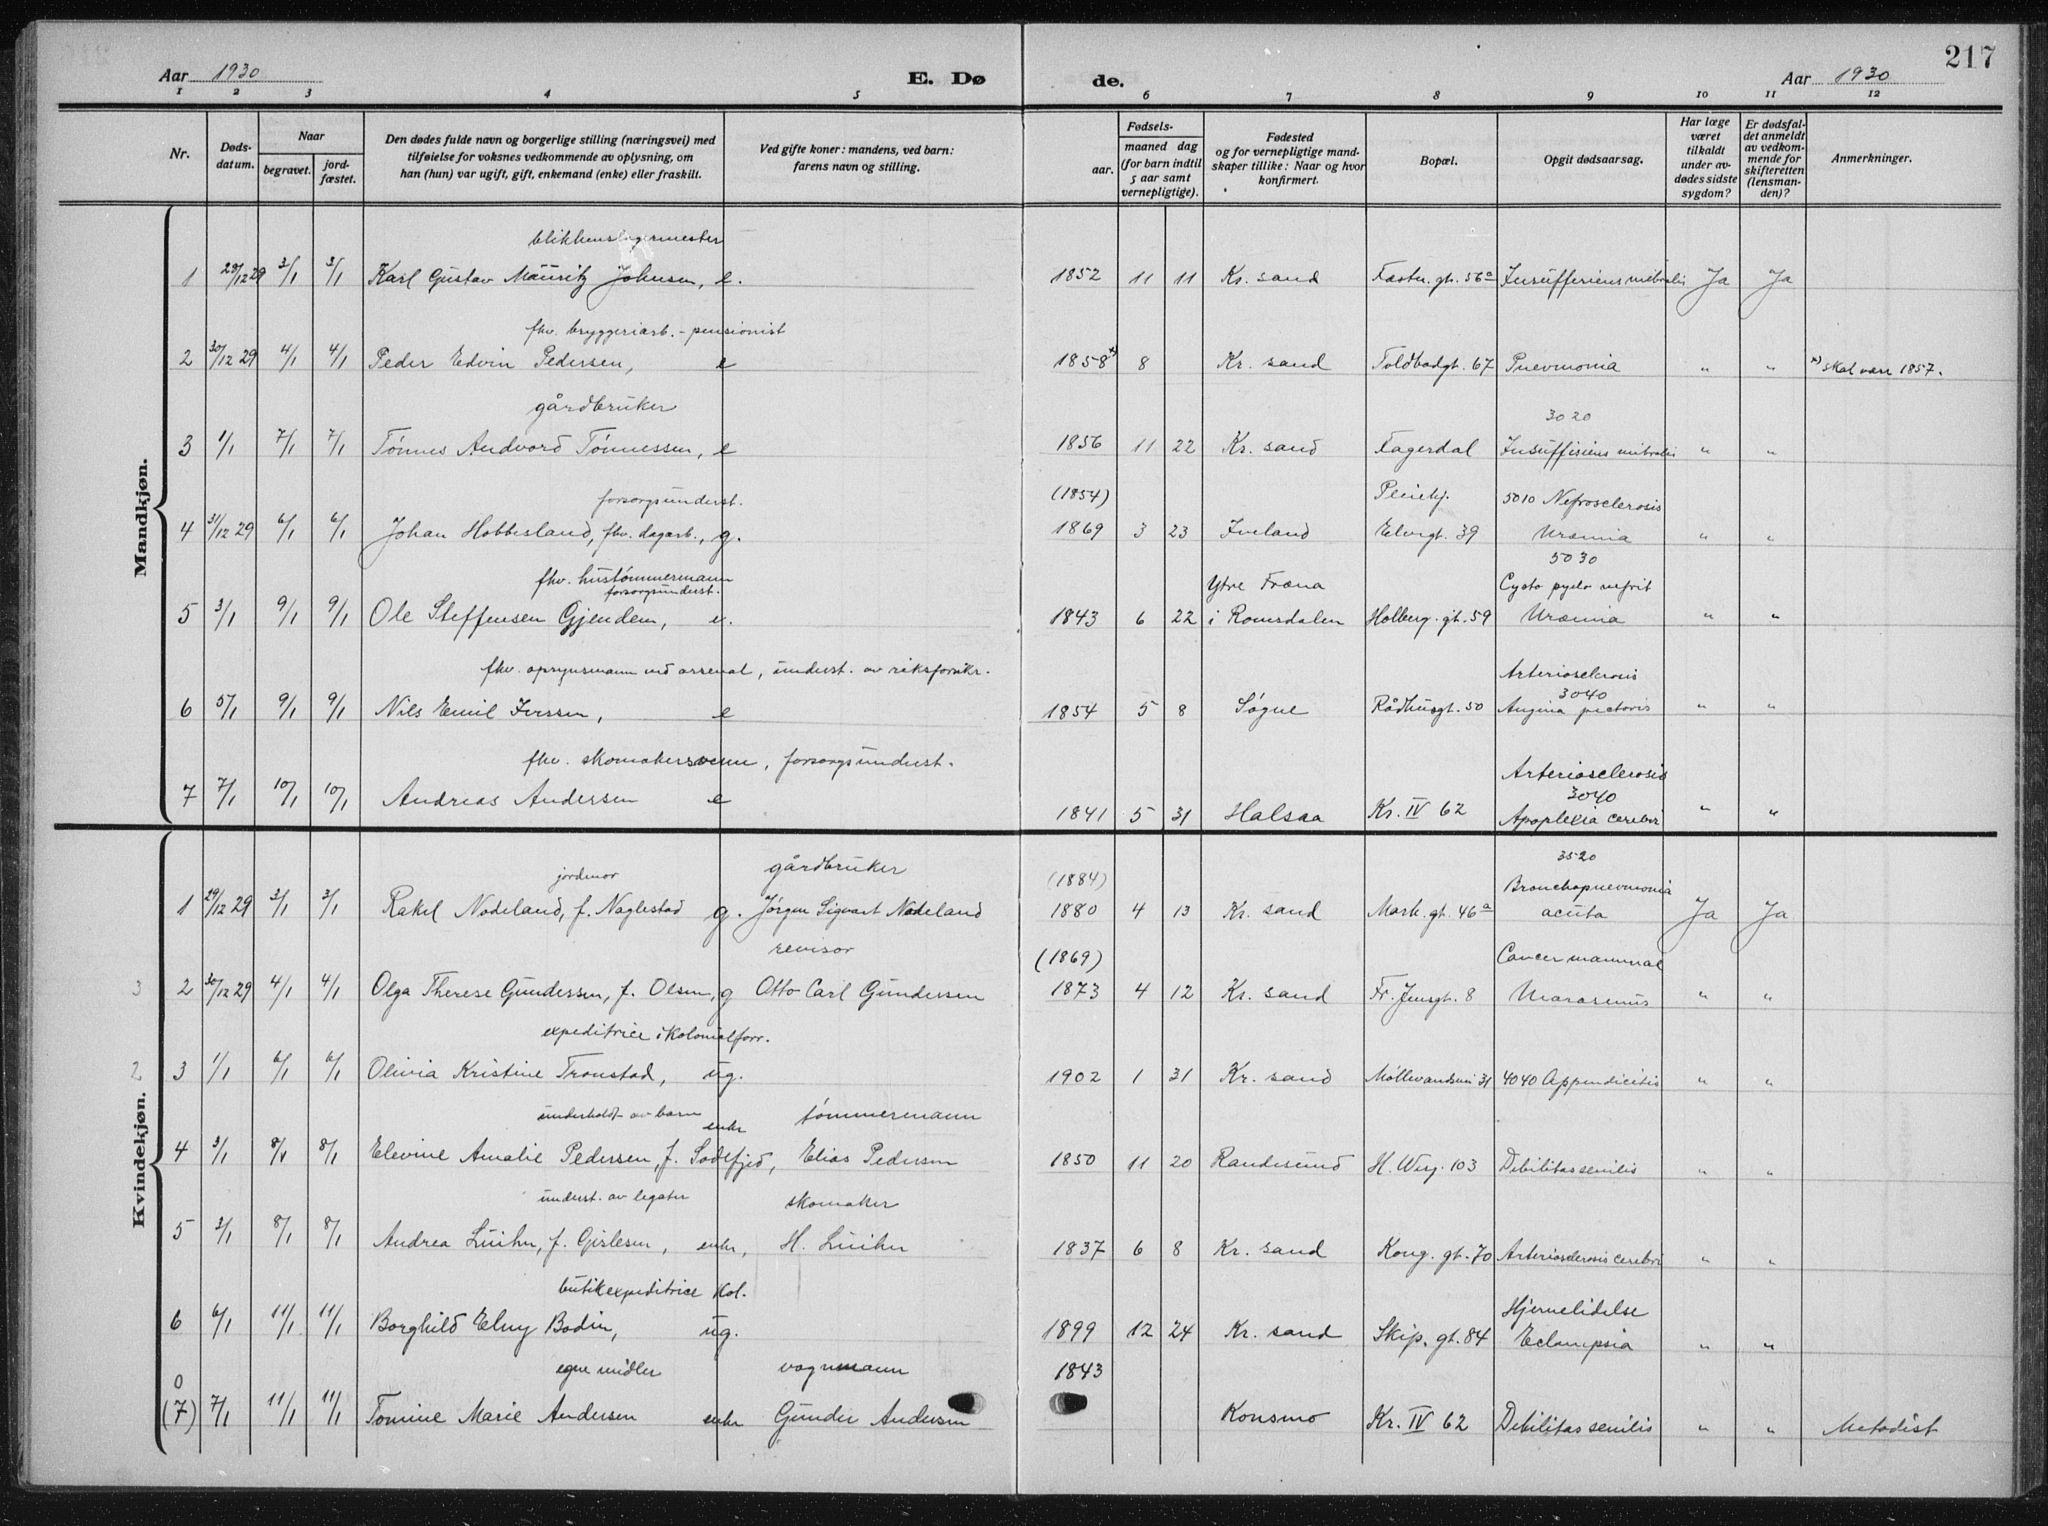 217
Aar 1930 E. Dø de. Aar 1930
1 2 3 4 5 6 7 8 9 10 11 12
Nr. Døds-datum. Naar begravet. jord-fæstet. Den dødes fulde navn og borgerlige stilling (næringsvei) med tilføielse for voksnes vedkommende av oplysning, om han (hun) var ugift, gift, enkemand (enke) eller fraskilt. Ved gifte koner: mandens, ved barn: farens navn og stilling. Fødsels- aar. maaned dag (for barn indtil 5 aar samt vernepligtige). Fødested og for vernepligtige mand-skaper tillike: Naar og hvor konfirmert. Bopæl. Opgit dødsaarsag. Har læge været tilkaldt under av-dødes sidste sygdom? Er dødsfal-det anmeldt av vedkom-mende for skifteretten (lensman-den)? Anmerkninger.
Mandkjøn.
blikkenslagermester
1 29/12 29 3/1 3/1 Karl Gustav Mauritz Johnsen, e. 1852 11 11 Kr. sand Fæstn. gt. 56a Insufficiens mitralis Ja Ja
fhv. bryggeriarb. - pensionist
2 30/12 29 4/1 4/1 Peder Edvin Pedersen, e 1858 x) 8 Kr. sand Toldbodgt. 67 Pnevmonia " " x) skal være 1857.
gårdbruker 3020
3 1/1 7/1 7/1 Tønnes Andvord Tønnessen, e 1856 11 22 Kr. sand Fagerdal Insuffisiens mitralis " "
forsorgsunderst. (1854) Pleiehj. 5010 Nefrosclerosis
4 31/12 29 6/1 6/1 Johan Hobbesland, fhv. dagarb., g. 1869 3 23 Iveland Elvegt. 39 Uræmia " "
5030
fhv. hustømmermann Ytre Fræna Cysto pyelo nefrit
forsorgsunderst.
5 3/1 9/1 9/1 Ole Steffensen Gjendem, e. 1843 6 22 i Romsdalen Holberg. gt. 59 Uræmia " "
fhv. opsynsmann ved arsenal, underst. av riksforsikr. Arteriosclerosis
3040
6 5/1 9/1 9/1 Nils Emil Iverssen, e 1854 5 8 Søgne Rådhusgt. 50 Angina pectoris " "
fhv. skomakersvenn, forsorgsunderst. Arteriosclerosis
3040
7 7/1 10/1 10/1 Andreas Andersen e 1841 5 31 Halsaa Kr. IV 62 Apoplexia cerebri " "
Kvindekjøn.
3520
jordmor gårdbruker (1884) Bronchopnevmonia
1 29/12 29 3/1 3/1 Rakel Nodeland, f. Naglestad g. Jørgen Sigvart Nodeland 1880 4 13 Kr. sand Mark. gt. 46a acuta Ja Ja
revisor (1869) Cancer mammae
3 2 30/12 29 4/1 4/1 Olga Therese Gundersen, f. Olsen, g Otto Carl Gundersen 1873 4 12 Kr. sand Fr. Jensgt. 8 Marasmus " "
expeditrice i kolonialforr.
2 3 1/1 6/1 6/1 Olivia Kristine Tronstad, ug. 1902 1 31 Kr. sand Møllevandsvei 31 4040 Appendicitis " "
underholdt av barn enke tømmermann
4 3/1 8/1 8/1 Elevine Amalie Pedersen, f. Sodefjed, Elias Pedersen 1850 11 20 Randesund H. Weg. 103 Debilitas senilis " "
underst. av legater skomaker
5 3/1 8/1 8/1 Andrea Luihn, f. Gislesen, enke, H. Luihn 1837 6 8 Kr. sand Kong. gt. 70 Arteriosclerosis cerebri " "
butikexpeditrice kol. Hjernelidelse
6 6/1 11/1 11/1 Borghild Elny Bodin, ug. 1899 12 24 Kr. sand Skip. gt. 84 Eclampsia " "
0 egne midler vognmann 1843
(7) 7/1 11/1 11/1 Tomine Marie Andersen enke Gunder Andersen Konsmo Kr. IV 62 Debilitas senilis " " Metodist